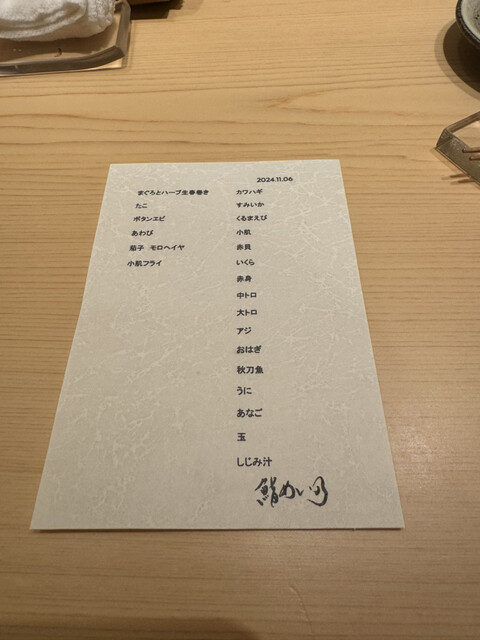 2024.11.06
まぐろとハーブ生春巻き
たこ
ボタンエビ
あわび
茄子 モロヘイヤ
小肌フライ
カワハギ
すみいか
くるまえび
小肌
赤貝
いくら
赤身
中トロ
大トロ
アジ
おはぎ
秋刀魚
うに
あなご
玉
しじみ汁
鮨めい乃